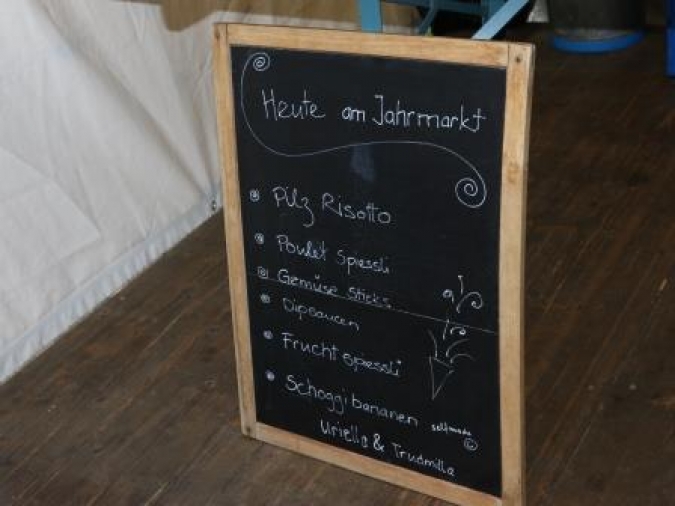 Heute am Jahrmarkt
Pilz Risotto
Poulet Spiessli
Gemüse Sticks
Dipsaucen
Frucht spiessli
Schoggibananen
selfmade
©
Uriella & Trudmilla